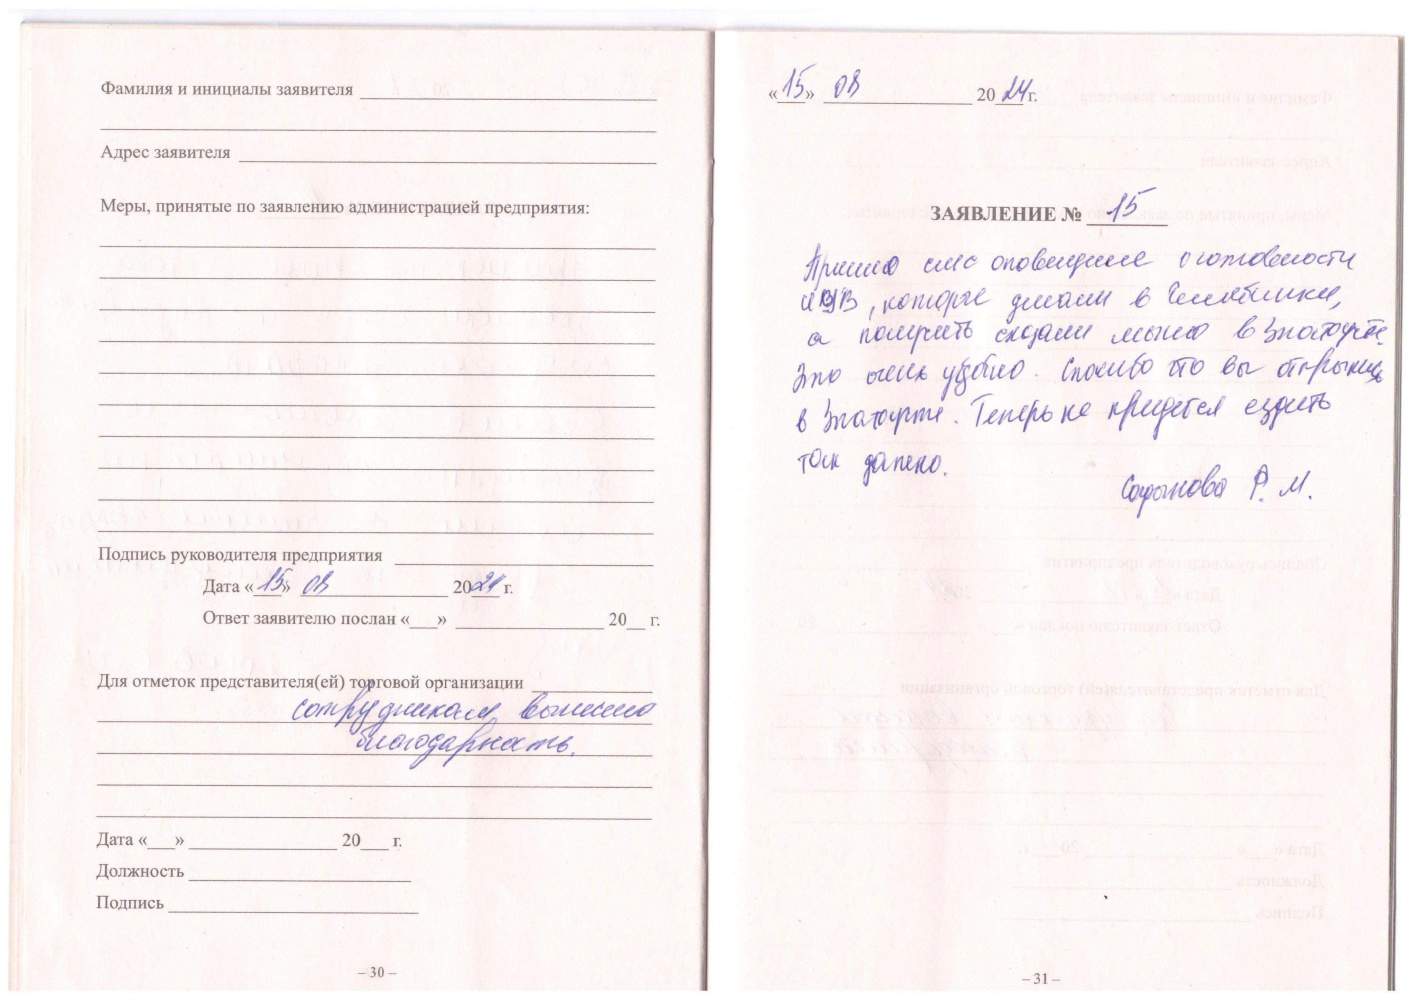 Фамилия и инициалы заявителя
Адрес заявителя
Меры, принятые по заявлению администрацией предприятия:
Подпись руководителя предприятия
Дата «15» 03 2024 г.
Ответ заявителю послан «___» 20__ г.
Для отметок представителя(ей) торговой организации
сотрудникам вынесено
благодарность.
Дата «___» 20___ г.
Должность
Подпись
– 30 –
«15» 03 2024 г.
ЗАЯВЛЕНИЕ № 15
Пришло смс оповещение о готовности
которые делали в Челябинске,
а получить сказали можно в Златоусте.
Это очень удобно. Спасибо что вы открылись
в Златоусте. Теперь не придется ездить
так далеко.
Р. М.
– 31 –